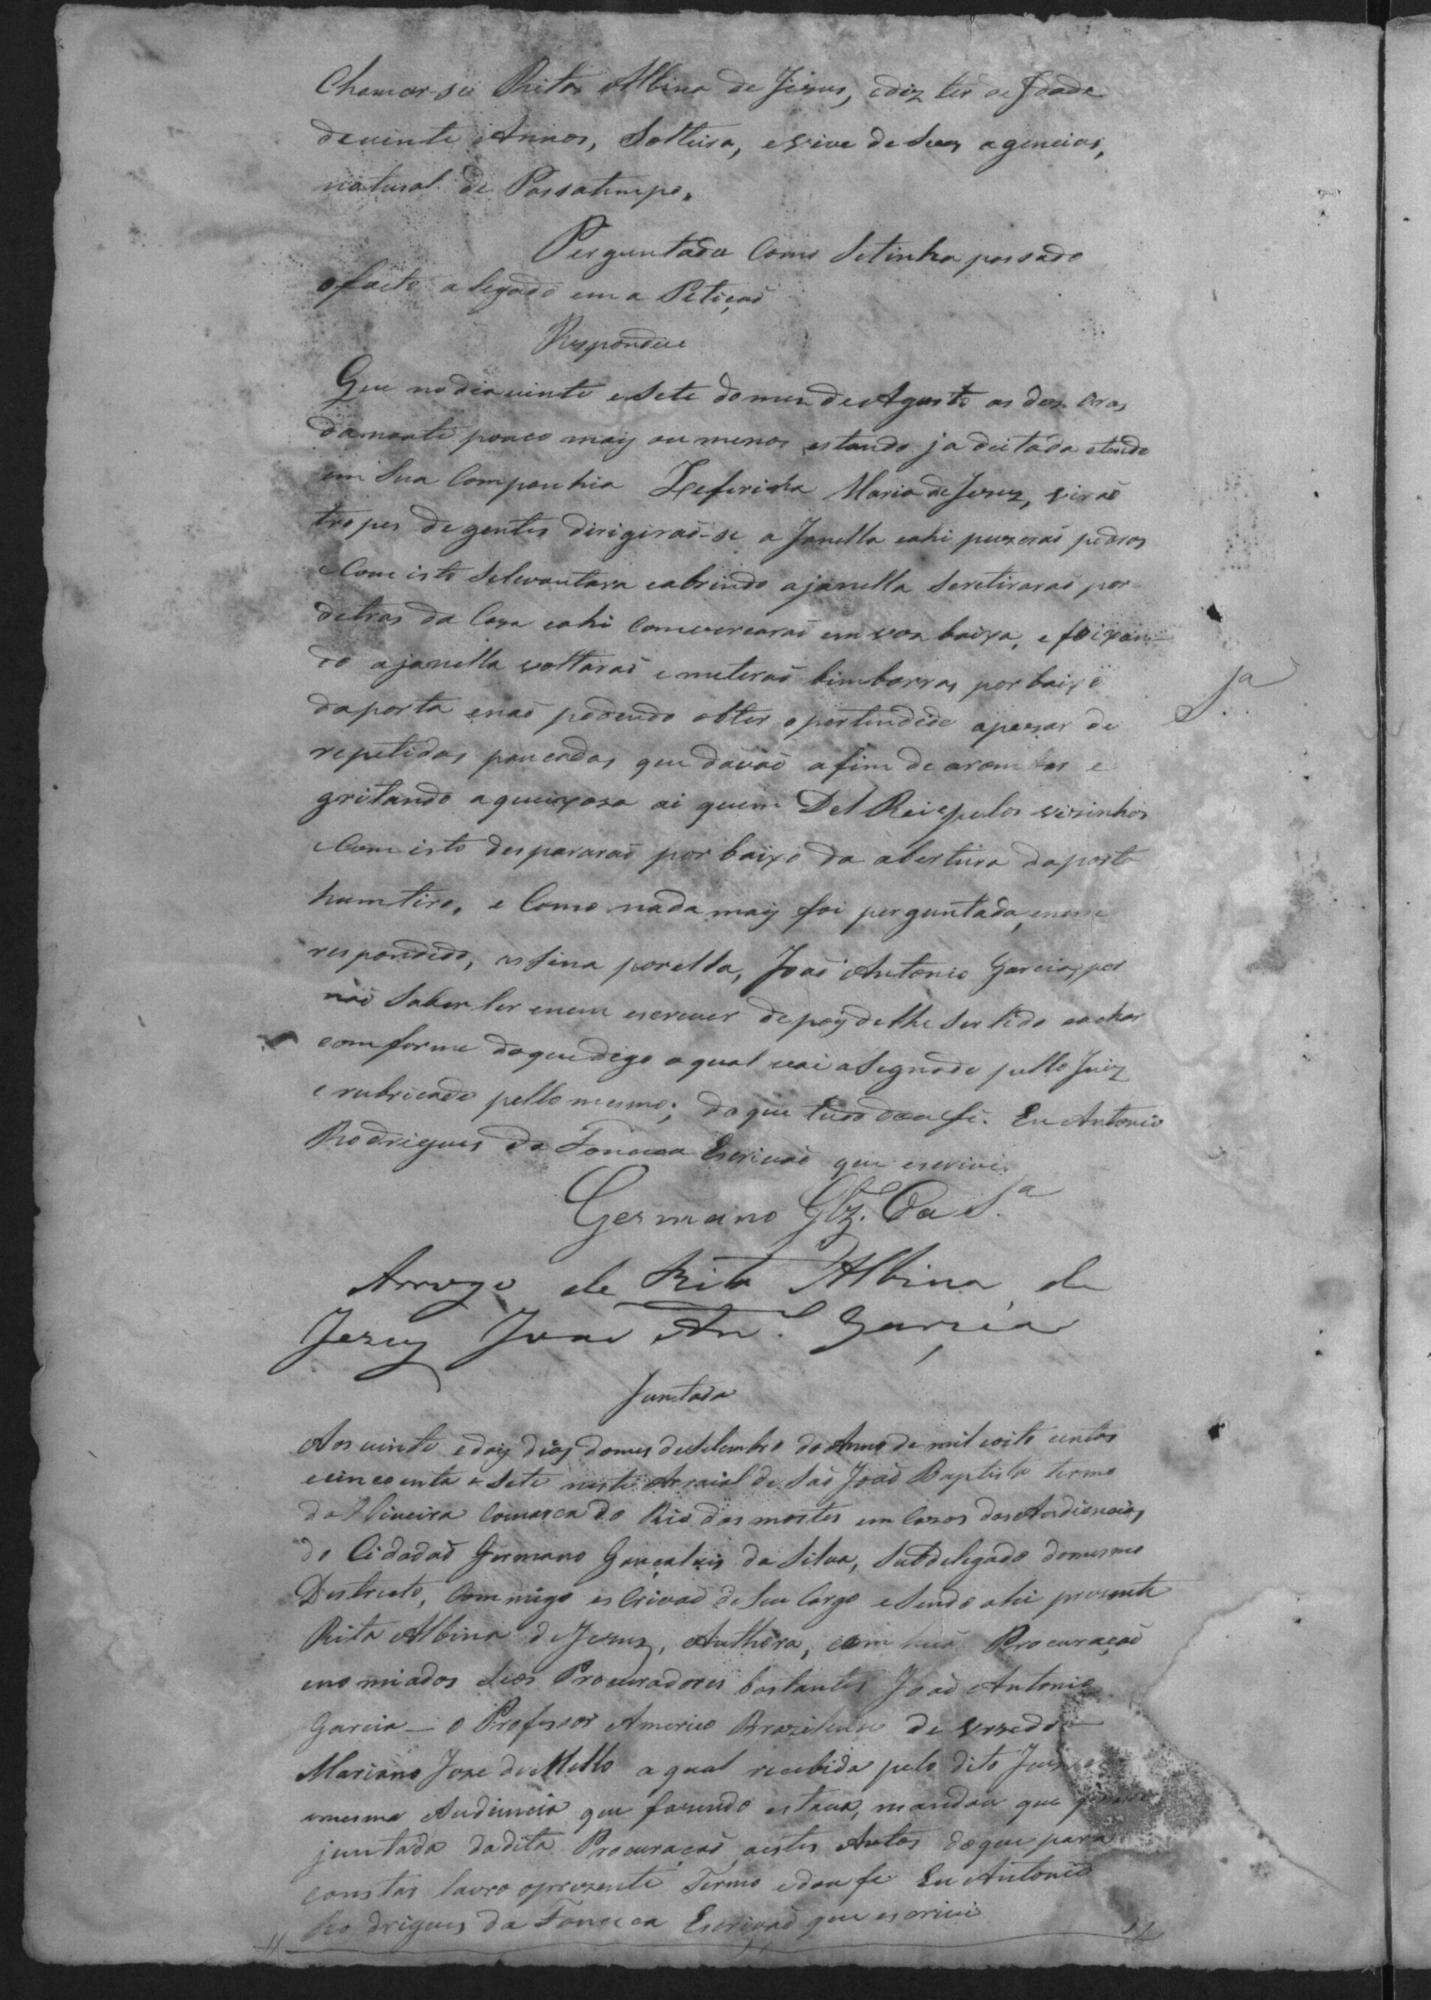 Chamar-se Rita Albina de Jesus, ediz ter de Idade
devinte Annos, Solteira, evive de Suas agencias,
natural de Passatempo.
Perguntada Como Setinha passado
ofacto alegado em a Petiçaõ
Respondeu
Que nodia vinte esete domes de Agosto as dez oras
danoute pouco mais ou menos estando ja deitada etendo
em Sua Companhia Zeferinha Maria de Jesus, viraõ
tropes de gentes dirigiraõ-se a Janella eahi puzeraõ pedras
eCom isto Selevantara eabrindo ajanella Seretiraraõ por
detras da Caza eahi Comvercaraõ em vos baixa, e feixan-
do ajanella voltaraõ e meteraõ bimbarras por baixo
daporta enaõ podendo obter opertendido apezar de
repetidas pancadas que davaõ afim de arombar e
gritando aqueixosa ai quem Del Rei epelos vizinhos
eCom isto despararaõ por baixo da abertura daporta
humtiro, e Como nada mais foi perguntada, enem
respondido, asina porella, Joaõ Antonio Garcia, por
naõ Saber ler enem escrever depois delhe Ser lido eachar
comforme doque digo oqual vai aSignado pello Juiz
erubricado pello mesmo; do que tudo dou fé. Eu Antonio
Rodrigues da Fonceca Escrivaõ que escrivi.
Germano Glz. da S.ª
Arrogo de Rita Albina de
Jezus Joao An.º Garcia
Juntada
Aos vinte edois dias domes deSetembro do Anno de mil oito centos
ecincoenta e Sete neste Arraial de Saõ Joaõ Baptista termo
da Oliveira Comarca do Rio das mortes em Cazas das Audiencias
do Cidadaõ Germano Gonçalves da Silva, Subdelegado domesmo
Destricto, Commigo esCrivaõ de Seu Cargo eSendo ahi prezente
Rita Albina de Jezus, Authora, com hua Procuraçaõ
enomiados Seos Procuradores bastantes Joaõ Antonio
Garcia — o Professor Americo Brazileiro de
Mariano Joze de Mello aqual recebida pelo dito Juiz
omesma Audiencia que fazendo estava, mandou que
juntada dadita Procuraçaõ aestes Autos doque para
constar lavro oprezente Termo edou fe Eu Antonio
Rodrigues da Fonceca Escrivaõ que escrivi
S.ª